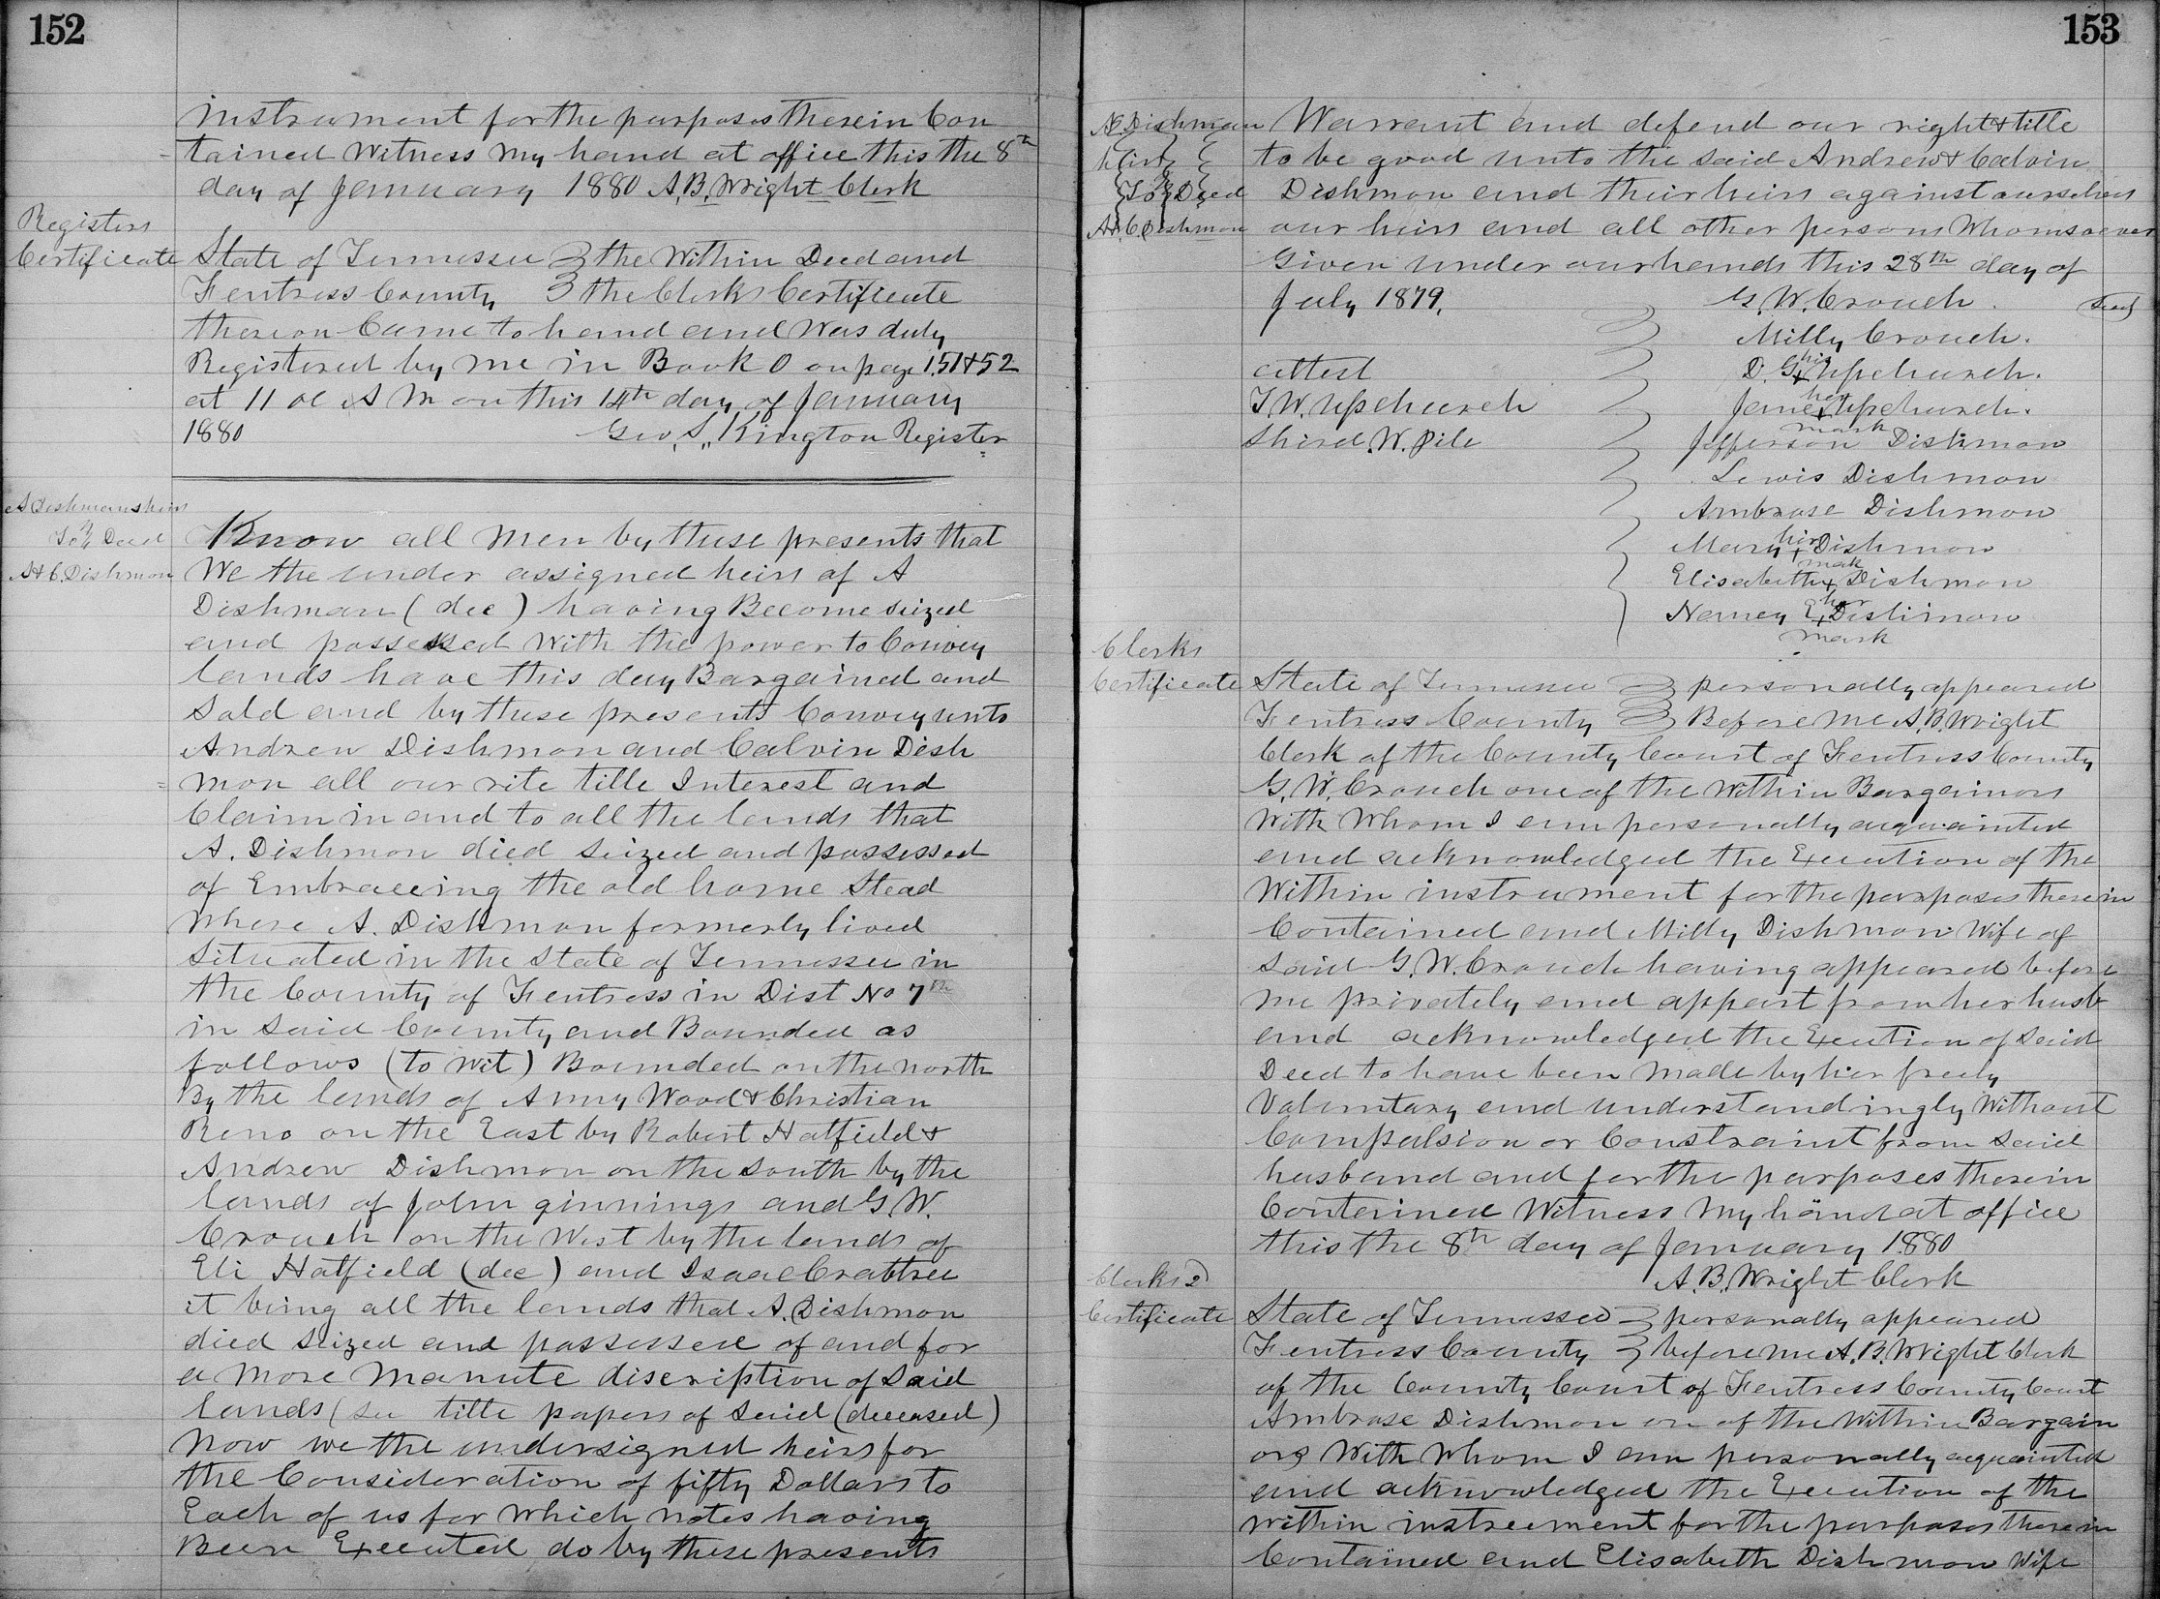 152
instrument for the purposes therein Con
tained Witness my hand at office this the 8th
day of January 1880 A. B. Wright Clerk
Registers
Certificate
State of Tennessee } the Within Deed and
Fentress County } the Clerks Certificate
thereon Came to hand and Was duly
Registered by me in Book O on page 151 & 52
at 11 oc A M on this 14th day of January
1880 Geo. S. Kington Register
A Dishmans heirs
To } Deed
A & C. Dishmon
Know all men by these presents that
We the under assigned heirs of A
Dishman (dec) having Become seized
and possessed With the power to Convey
lands have this day Bargained and
Sold and by these presents Convey unto
Andrew Dishmon and Calvin Dish
mon all our rite title Interest and
Claim in and to all the lands that
A. Dishmon died seized and possessed
of Embraceing the old home Stead
Where A. Dishmon formerly lived
Situated in the State of Tennessee in
the County of Fentress in Dist No 7th
in Said County and Bounded as
follows (to Wit) Bounded on the north
By the lands of Anny Wood & Christian
Reno on the East by Robert Hatfield &
Andrew Dishmon on the South by the
lands of John ginnings and G W.
Crouch on the West by the lands of
Eli Hatfield (dec) and Isaac Crabtree
it being all the lands that A. Dishmon
died seized and possessed of and for
a more manute discription of Said
lands (see title papers of Said (deceased)
Now we the undersigned heirs for
the Consideration of fifty Dollars to
Each of us for Which notes having
Been Executed do by these presents
153
A Dishman
heirs
To } Deed
A & C. Dishmon
Warrant and defend our right & title
to be good unto the Said Andrew & Calvin
Dishmon and their heirs against ourselves
our heirs and all other persons Whomsoever
Given under our hands this 28th day of
July 1879. G. W. Crouch. Seal
Milly Crouch.
attest D. G. his x Upchurch.
T. W. Upchurch Jane her x mark Upchurch.
Shird. W. Pile Jefferson Dishmon
Lewis Dishmon
Ambrose Dishmon
Mary his x mark Dishmon
Elisabeth x Dishmon
Nancy E her x mark Dishmon
Clerks
Certificate
State of Tennessee } personally appeared
Fentress County } Before me A. B. Wright
Clerk of the County Court of Fentress County
G. W. Crouch one of the Within Bargainors
With Whom I am personally acquainted
and acknowledged the Execution of the
Within instrument for the purposes therein
Contained and Milly Dishmon Wife of
Said G. W. Crouch having appeared before
me privately and appart from her husb
and acknowledged the Exeution of Said
Deed to have been made by her freely
Voluntary and understandingly Without
Compulsion or Constraint from Said
husband and for the purposes therein
Contained Witness my hand at office
this the 8th day of January 1880
A. B. Wright Clerk
Clerks 2
Certificate
State of Tennessee } personally appeared
Fentress County } before me A. B. Wright Clerk
of the County Court of Fentress County Court
Ambrose Dishmon on of the Within Bargain
ors With Whom I am personally acquainted
and acknowledged the Execution of the
Within instreement for the purposes therein
Contained and Elisabeth Dishmon Wife